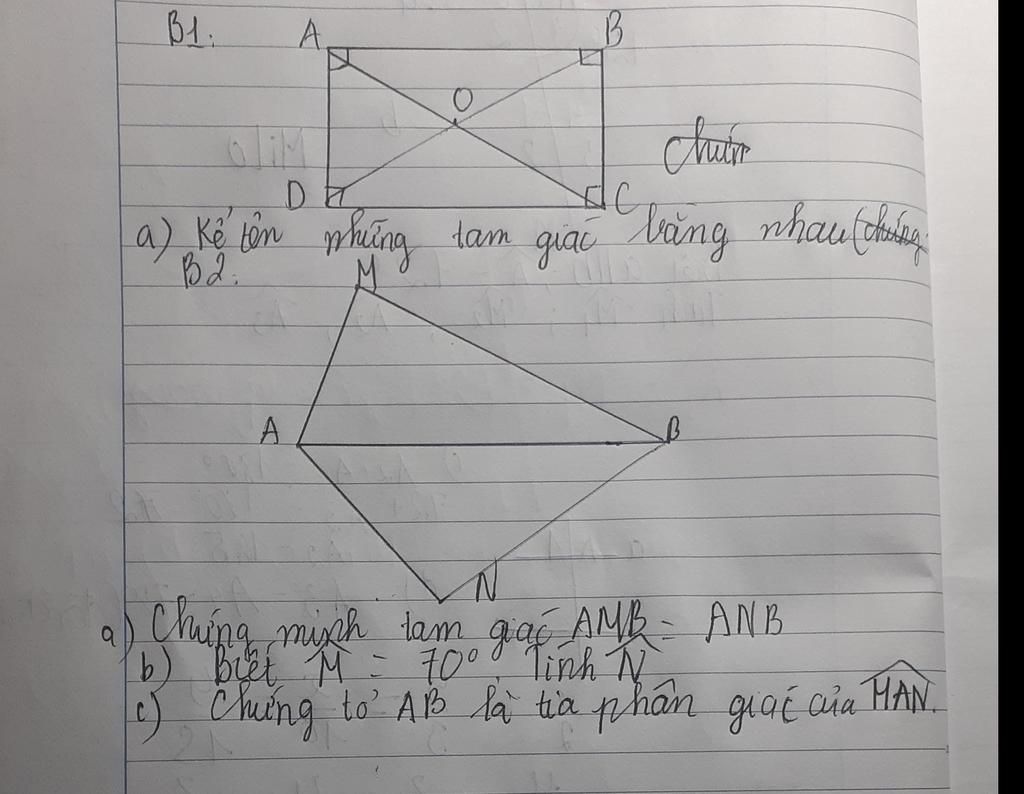 B1:
A B
O
Chứn
D C
a) Kể tên những tam giác bằng nhau (chứng
B2:
M
A B
N
a) Chứng minh tam giác AMB = ANB
b) Biết M̂ = 70° Tính N̂
c) Chứng tỏ AB là tia phân giác của MAN.